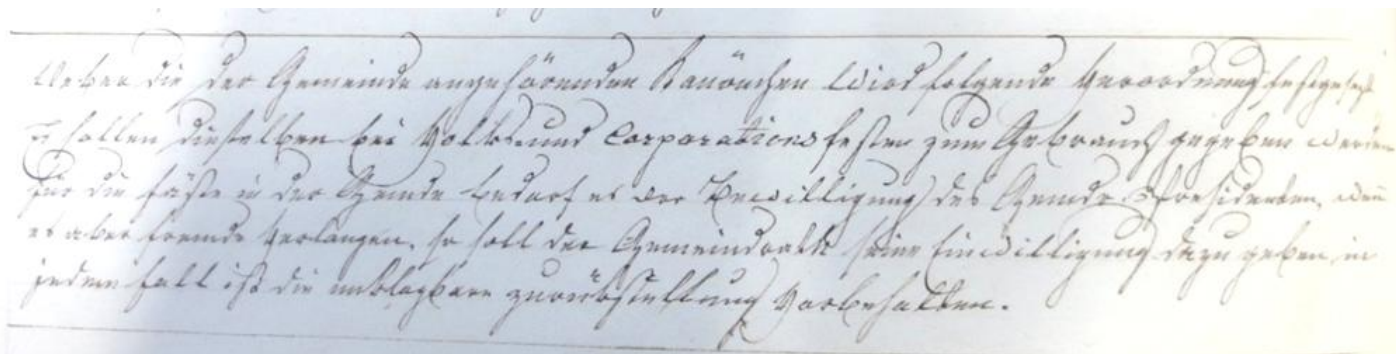 Ueber die der Gemeinde angehörenden Kanönchen wird folgende Verordnung festgesezt
Es sollen dieselben bei Volks- und Corporationsfesten zum Gebrauch gegeben werden
für die Fäste in der Gemde bedarf es der Bewilligung des Gemdspresidenten, wen
es aber fremde verlangen, so soll der Gemeindrath seine Einwilligung dazu geben in
jedem fall ist die unklagbare zurükstellung vorbehalten.